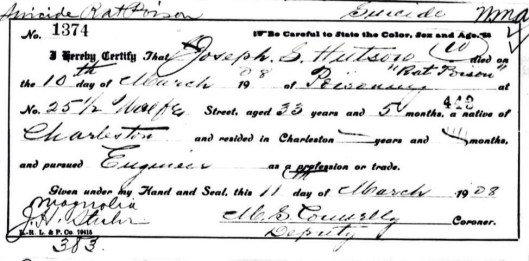 Suicide Rat Poison Suicide
No. 1374 Be Careful to State the Color, Sex and Age.
I Hereby Certify That Joseph S. Hutson (W) died on
the 10th day of March 1908 of Poisoning "Rat Poison" at
No. 25 1/2 Wolfe Street, aged 33 years and 5 months, a native of
Charleston and resided in Charleston years and months,
and pursued Engineer as a profession or trade.
Given under my Hand and Seal, this 11 day of March 1908
Magnolia
J. H. Stuhr M. E. Connelly Coroner.
Deputy
383